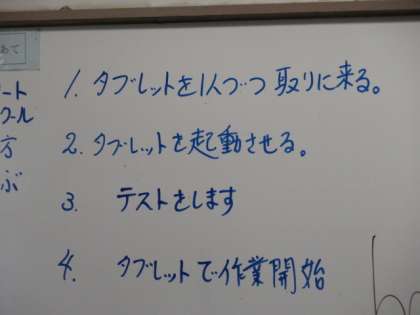 あて
ート
クール
方
ぶ
1. タブレットを1人づつ取りに来る。
2. タブレットを起動させる。
3. テストをします
4. タブレットで作業開始